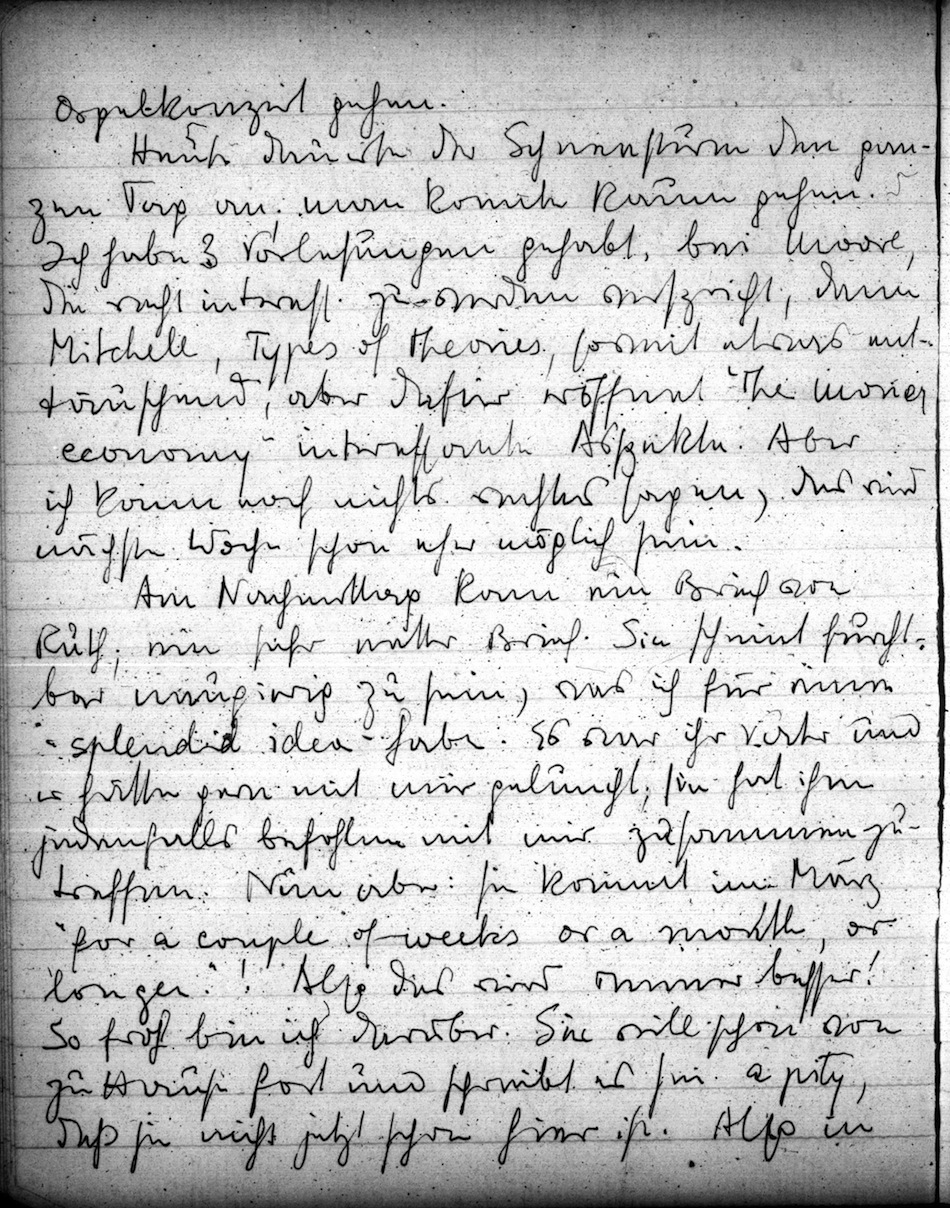 Orgelkonzert gehen.
Heute dauerte der Schneesturm den gan-
zen Tag an; man konnte kaum gehen.
Ich habe 3 Vorlesungen gehabt, bei Moore,
die recht interess. zu werden verspricht, dann
Mitchell, Types of Theories, soweit etwas ent-
täuschend, aber dafür eröffnet "The money
economy" interessante Aspekte. Aber
ich kann noch nichts rechtes sagen, das wird
nächste Woche schon eher möglich sein.
Am Nachmittag kam ein Brief von
Ruth, ein sehr netter Brief. Sie scheint furcht-
bar neugierig zu sein, was ich für eine
"splendid idea" habe. Es war ihr Vater und
er hätte gern mit mir geluncht, sie hat ihm
jedenfalls befohlen mit mir zusammenzu-
treffen. Nun aber: sie kommt im März
"for a couple of weeks or a month, or
longer."! Also das wird immer besser!
So froh bin ich darüber. Sie will schon von
zu Hause fort und schreibt es sei a pity,
daß sie nicht jetzt schon hier ist. Also in